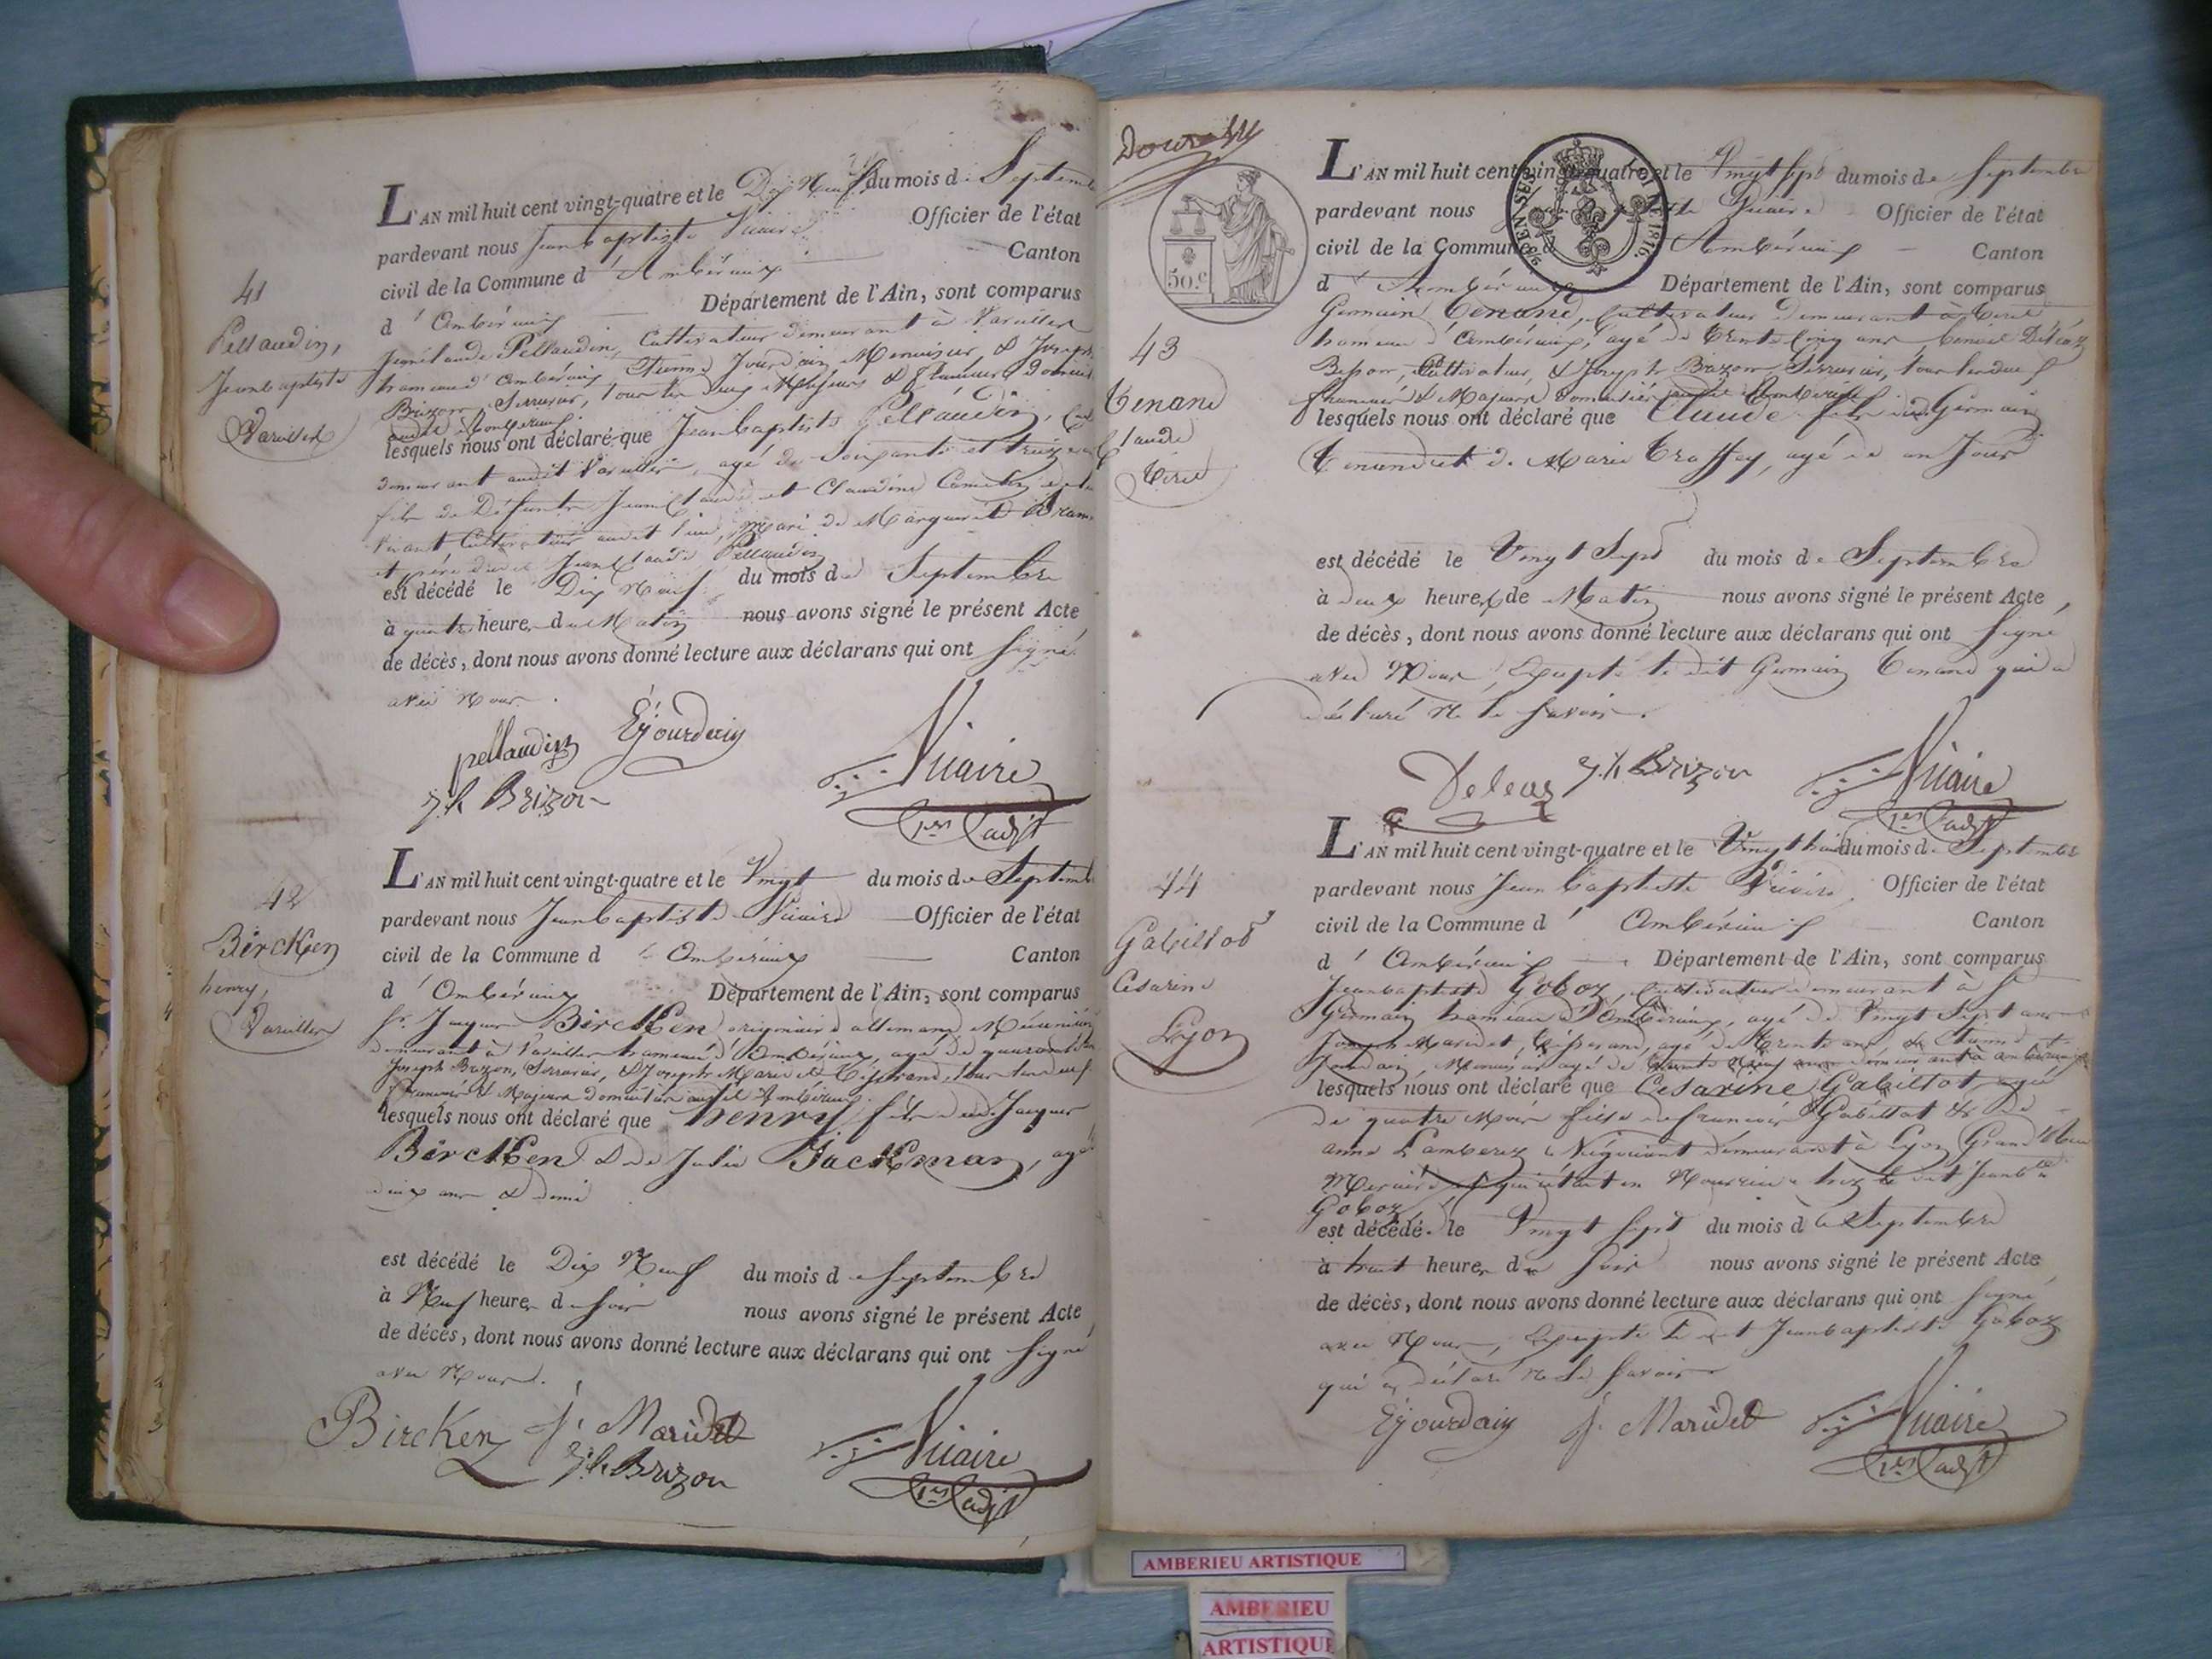 41
Pellaudin,
Jeanbaptiste
Vareilles
L'AN mil huit cent vingt-quatre et le Dix Neuf du mois de Septembre
pardevant nous Jeanbaptiste Viaire Officier de l'état
civil de la Commune d' Ambérieux Canton
d' Ambérieux Département de l'Ain, sont comparus
Jeanclaude Pellaudin, Cultivateur demeurant à Vareilles
hameau d'Ambérieux, Jourdain Menuisier, & Joseph
Brizon Serrurier, tous les deux Majeurs &
audit Ambérieux
lesquels nous ont déclaré que Jeanbaptiste Pellaudin,
demeurant audit Vareilles, agé de Soixante et treize
fils de Défunts Jeanclaude et Claudine
vivant Cultivateur audit lieu, Mari de Marguerite
et père dudit Jeanclaude Pellaudin
est décédé le Dix Neuf du mois de Septembre
à quatre heures du Matin nous avons signé le présent Acte
de décès, dont nous avons donné lecture aux déclarans qui ont signé
avec Nous.
pellaudin Ejourdain
J.h Brizon Viaire
1er adjt
42
Bircken
henry,
Vareilles
L'AN mil huit cent vingt-quatre et le Vingt du mois de Septembre
pardevant nous Jeanbaptiste Viaire Officier de l'état
civil de la Commune d' Ambérieux Canton
d' Ambérieux Département de l'Ain, sont comparus
Sr. Jacques Bircken originaire allemand,
demeurant à Vareilles hameau d'Ambérieux, agé de quarante
Joseph Brizon, Serrurier, & Joseph Maridet Tisserand, tous les deux
français & Majeurs domiciliés audit Ambérieux
lesquels nous ont déclaré que henry fils dudit Jacques
Bircken & de Julie Jackman, agé
deux ans & demi
est décédé le Dix Neuf du mois de Septembre
à Neuf heures du Soir nous avons signé le présent Acte
de décès, dont nous avons donné lecture aux déclarans qui ont signé
avec Nous.
Bircken J. Maridet
J.h Brizon Viaire
1er adjt
50.c
1816.
43
Tenand
Claude
Tiret
L'AN mil huit cent vingt-quatre et le Vingt Sept du mois de Septembre
pardevant nous Viaire Officier de l'état
civil de la Commune d' Ambérieux Canton
d' Ambérieux Département de l'Ain, sont comparus
Germain Tenand, Cultivateur demeurant à Tiret
hameau d'Ambérieux, agé de Trente Cinq ans Benoit Déléaz
Besson, Cultivateur, & Joseph Brizon Serrurier, tous les deux
français & Majeurs domiciliés audit Ambérieux
lesquels nous ont déclaré que Claude fils dudit Germain
Tenand et de Marie Traffey, agé de un Jour
est décédé le Vingt Sept du mois de Septembre
à deux heures de Matin nous avons signé le présent Acte
de décès, dont nous avons donné lecture aux déclarans qui ont signé
avec Nous, excepté le dit Germain Tenand qui a
déclaré ne le savoir.
Deleas J.h Brizon Viaire
1er adjt
44
Gabillot
Cesarine
Lyon
L'AN mil huit cent vingt-quatre et le Vingt huit du mois de Septembre
pardevant nous Jean baptiste Viaire Officier de l'état
civil de la Commune d' Ambérieux Canton
d' Ambérieux Département de l'Ain, sont comparus
Jeanbaptiste Goboz, Cultivateur demeurant à St
Germain hameau d'Ambérieux, agé de Vingt Sept ans
Joseph Maridet, Tisserand, agé de Trente ans, &
Jourdain, Menuisier agé de trente neuf ans demeurant à Ambérieux
lesquels nous ont déclaré que Cesarine Gabillot, agée
de quatre Mois fille de françois Gabillot & de
anne Négociant demeurant à Lyon Grand Rue
Mercière qui était en Nourrice chez le dit Jeanbte
Goboz,
est décédé. le Vingt Sept du mois de Septembre
à huit heures du Soir nous avons signé le présent Acte
de décès, dont nous avons donné lecture aux déclarans qui ont signé
avec Nous, excepté le dit Jeanbaptiste Goboz
qui a déclaré ne le savoir
Ejourdain J. Maridet Viaire
1er adjt
AMBERIEU ARTISTIQUE
AMBERIEU
ARTISTIQUE